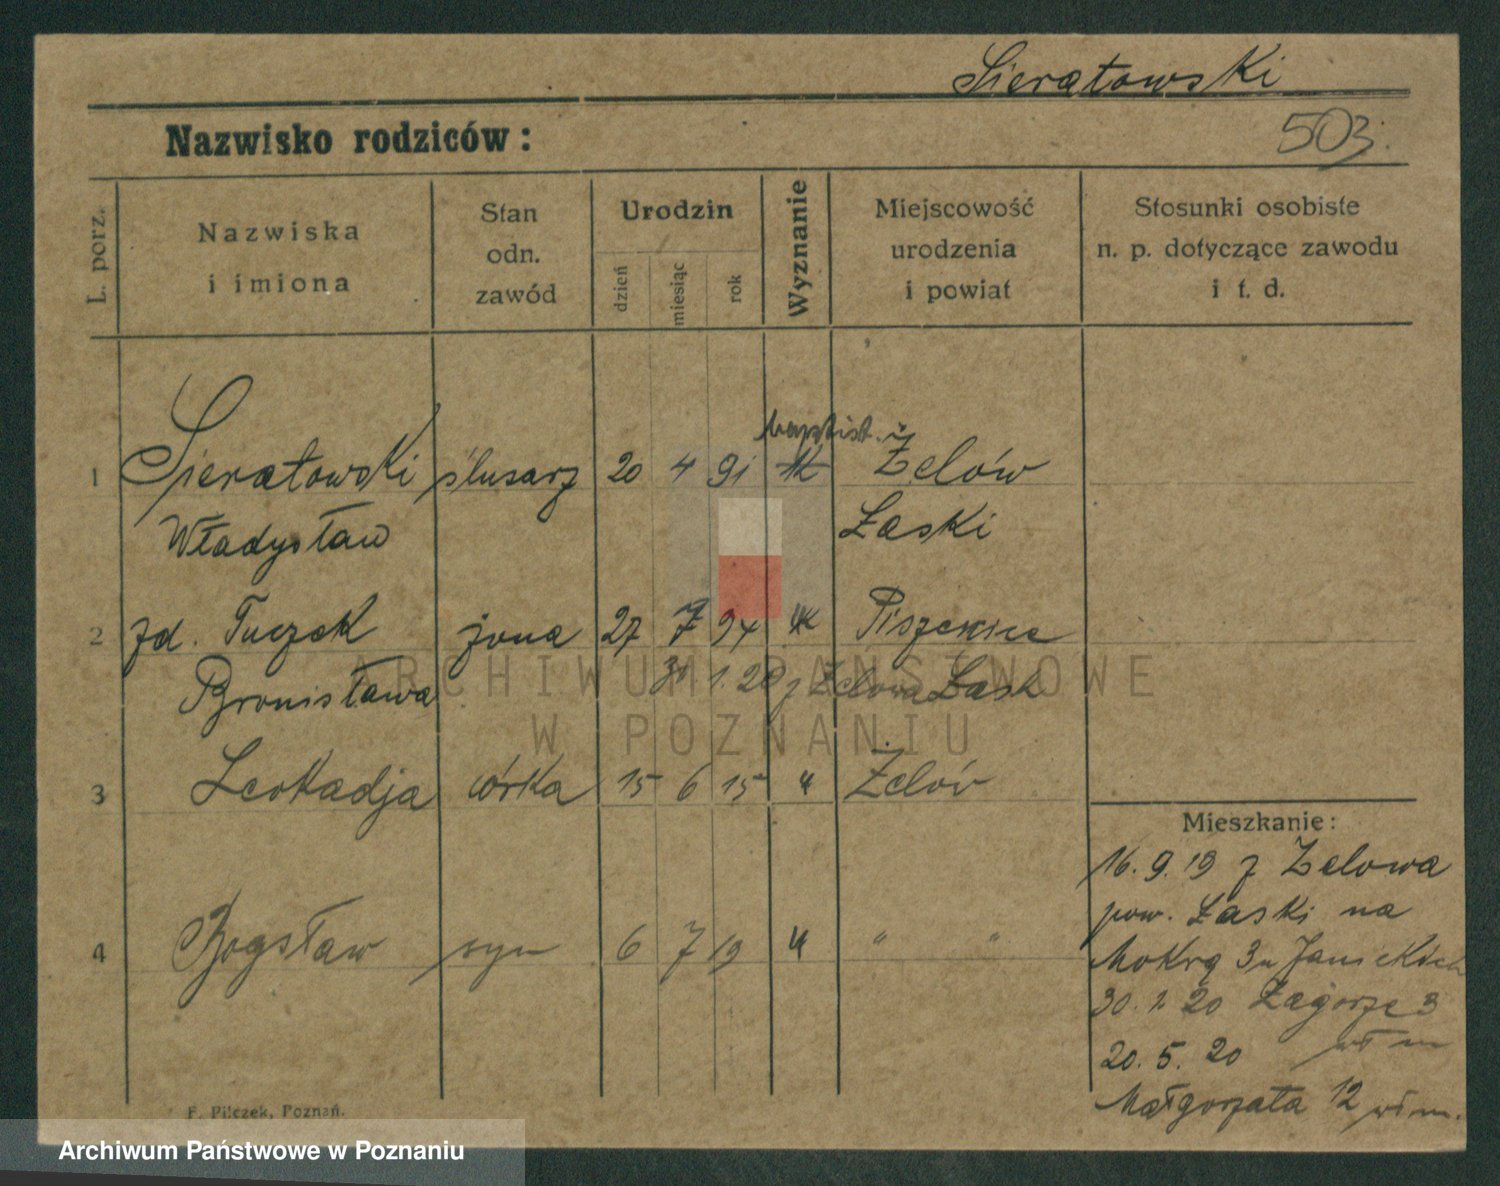 Sieratowski
Nazwisko rodziców:
503.
L. porz.
Nazwiska
i imiona
Stan
odn.
zawód
Urodzin
dzień
miesiąc
rok
Wyznanie
Miejscowość
urodzenia
i powiat
Stosunki osobiste
n. p. dotyczące zawodu
i t. d.
baptist.
1 Sieratowski ślusarz 20 4 91 k Żelów
Władysław Łaski
2 zd. Tuczek żona 27 7 94 k
Bronisława 31 1. 20 z Żelowa Łask
3 Leokadja córka 15 6 15 " Żelów
4 Bogsław syn 6 7 19 " " "
Mieszkanie:
16. 9. 19 z Żelowa
pow. Łaski na
Mokrą 3 u
30. 1. 20 Zagórze 3
20. 5. 20 wł m
Małgorzata 12 wł m.
F. Pilczek, Poznań.
ARCHIWUM PAŃSTWOWE
W POZNANIU
Archiwum Państwowe w Poznaniu